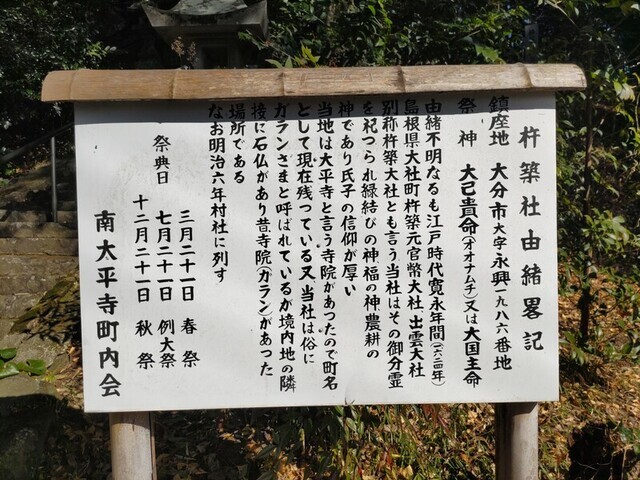 杵築社由緒畧記
鎮座地 大分市大字永興一九八六番地
祭神 大己貴命(オオナムチ)又は大国主命
由緒不明なるも江戸時代寛永年間(一六二四年)
島根県大社町杵築元官幣大社、出雲大社
別称杵築大社とも言う当社はその御分霊
を祀つられ縁結びの神福の神農耕の
神であり氏子の信仰が厚い
当地は大平寺と言う寺院があつたので町名
として現在残つている又、当社は俗に
ガランさまと呼ばれているが境内地の隣
接に石仏があり昔寺院(ガラン)があった
場所である
なお明治六年村社に列す
祭典日 三月二十一日 春祭
七月二十一日 例大祭
十二月二十一日 秋祭
南太平寺町内会